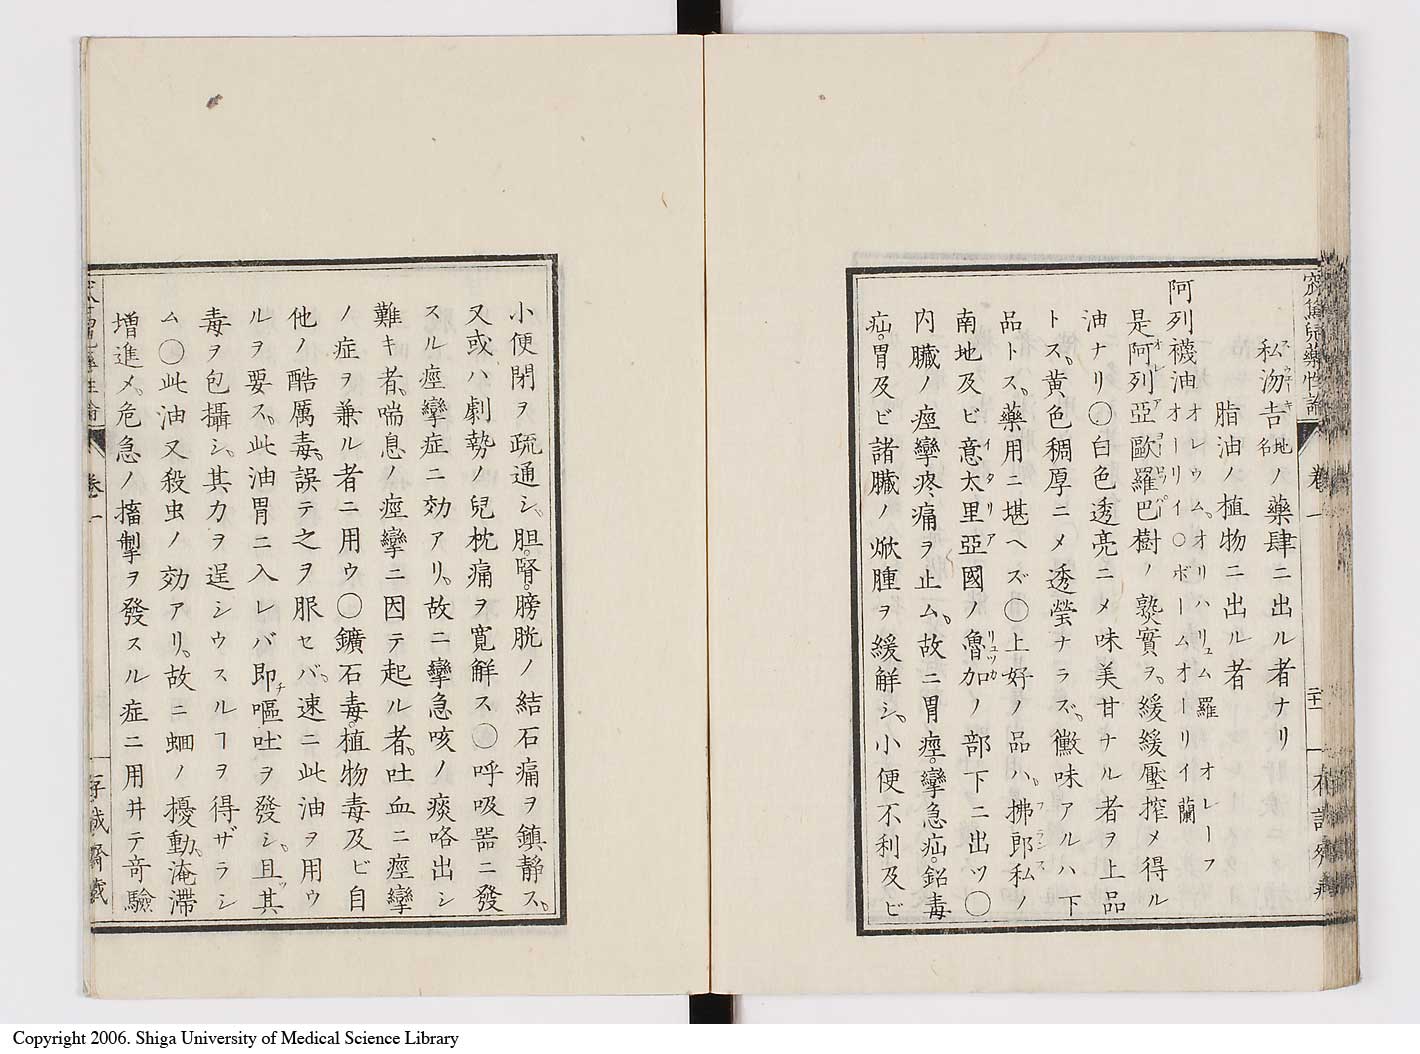 窊篤兒藥性論
卷一
二十二
私沕吉地名ノ藥肆ニ出ル者ナリ
スウーキ
脂油ノ植物ニ出ル者
阿列襪油オレウム。オリハリュム羅 オレーフオーリイ○ボームオーリイ蘭
是阿列亞歐羅巴樹ノ熟實ヲ。緩緩壓搾メ得ル
オレア ヨーロッパ
油ナリ○白色透亮ニメ味美甘ナル者ヲ上品
トス。黃色稠厚ニメ透瑩ナラズ。黴味アルハ下
品トス。藥用ニ堪ヘズ○上好ノ品ハ。拂郎私ノ
フランス
南地及ビ意太里亞國ノ魯加ノ部下ニ出ツ○
イタリア リュッカ
內臟ノ痙攣疼痛ヲ止ム。故ニ胃痙。攣急疝。鉛毒
疝。胃及ビ諸臟ノ焮腫ヲ緩解シ。小便不利及ビ
小便閉ヲ疏通シ。胆。腎。膀胱ノ結石痛ヲ鎮靜ス。
又或ハ劇勢ノ兒枕痛ヲ寬解ス○呼吸器ニ發
スル痙攣症ニ効アリ。故ニ攣急咳ノ痰咯出シ
難キ者。喘息ノ痙攣ニ因テ起ル者。吐血ニ痙攣
ノ症ヲ兼ル者ニ用ウ○鑛石毒。植物毒及ビ自
他ノ酷厲毒。誤テ之ヲ服セバ。速ニ此油ヲ用ウ
ルヲ要ス。此油胃ニ入レバ即チ嘔吐ヲ發シ。且ツ其
毒ヲ包攝シ。其力ヲ逞シウスルヿヲ得ザラシ
ム○此油又殺虫ノ効アリ。故ニ蛔ノ擾動。淹滯
增進メ。危急ノ搐掣ヲ發スル症ニ用井テ奇驗
卷一
存誠齋藏
Copyright 2006. Shiga University of Medical Science Library